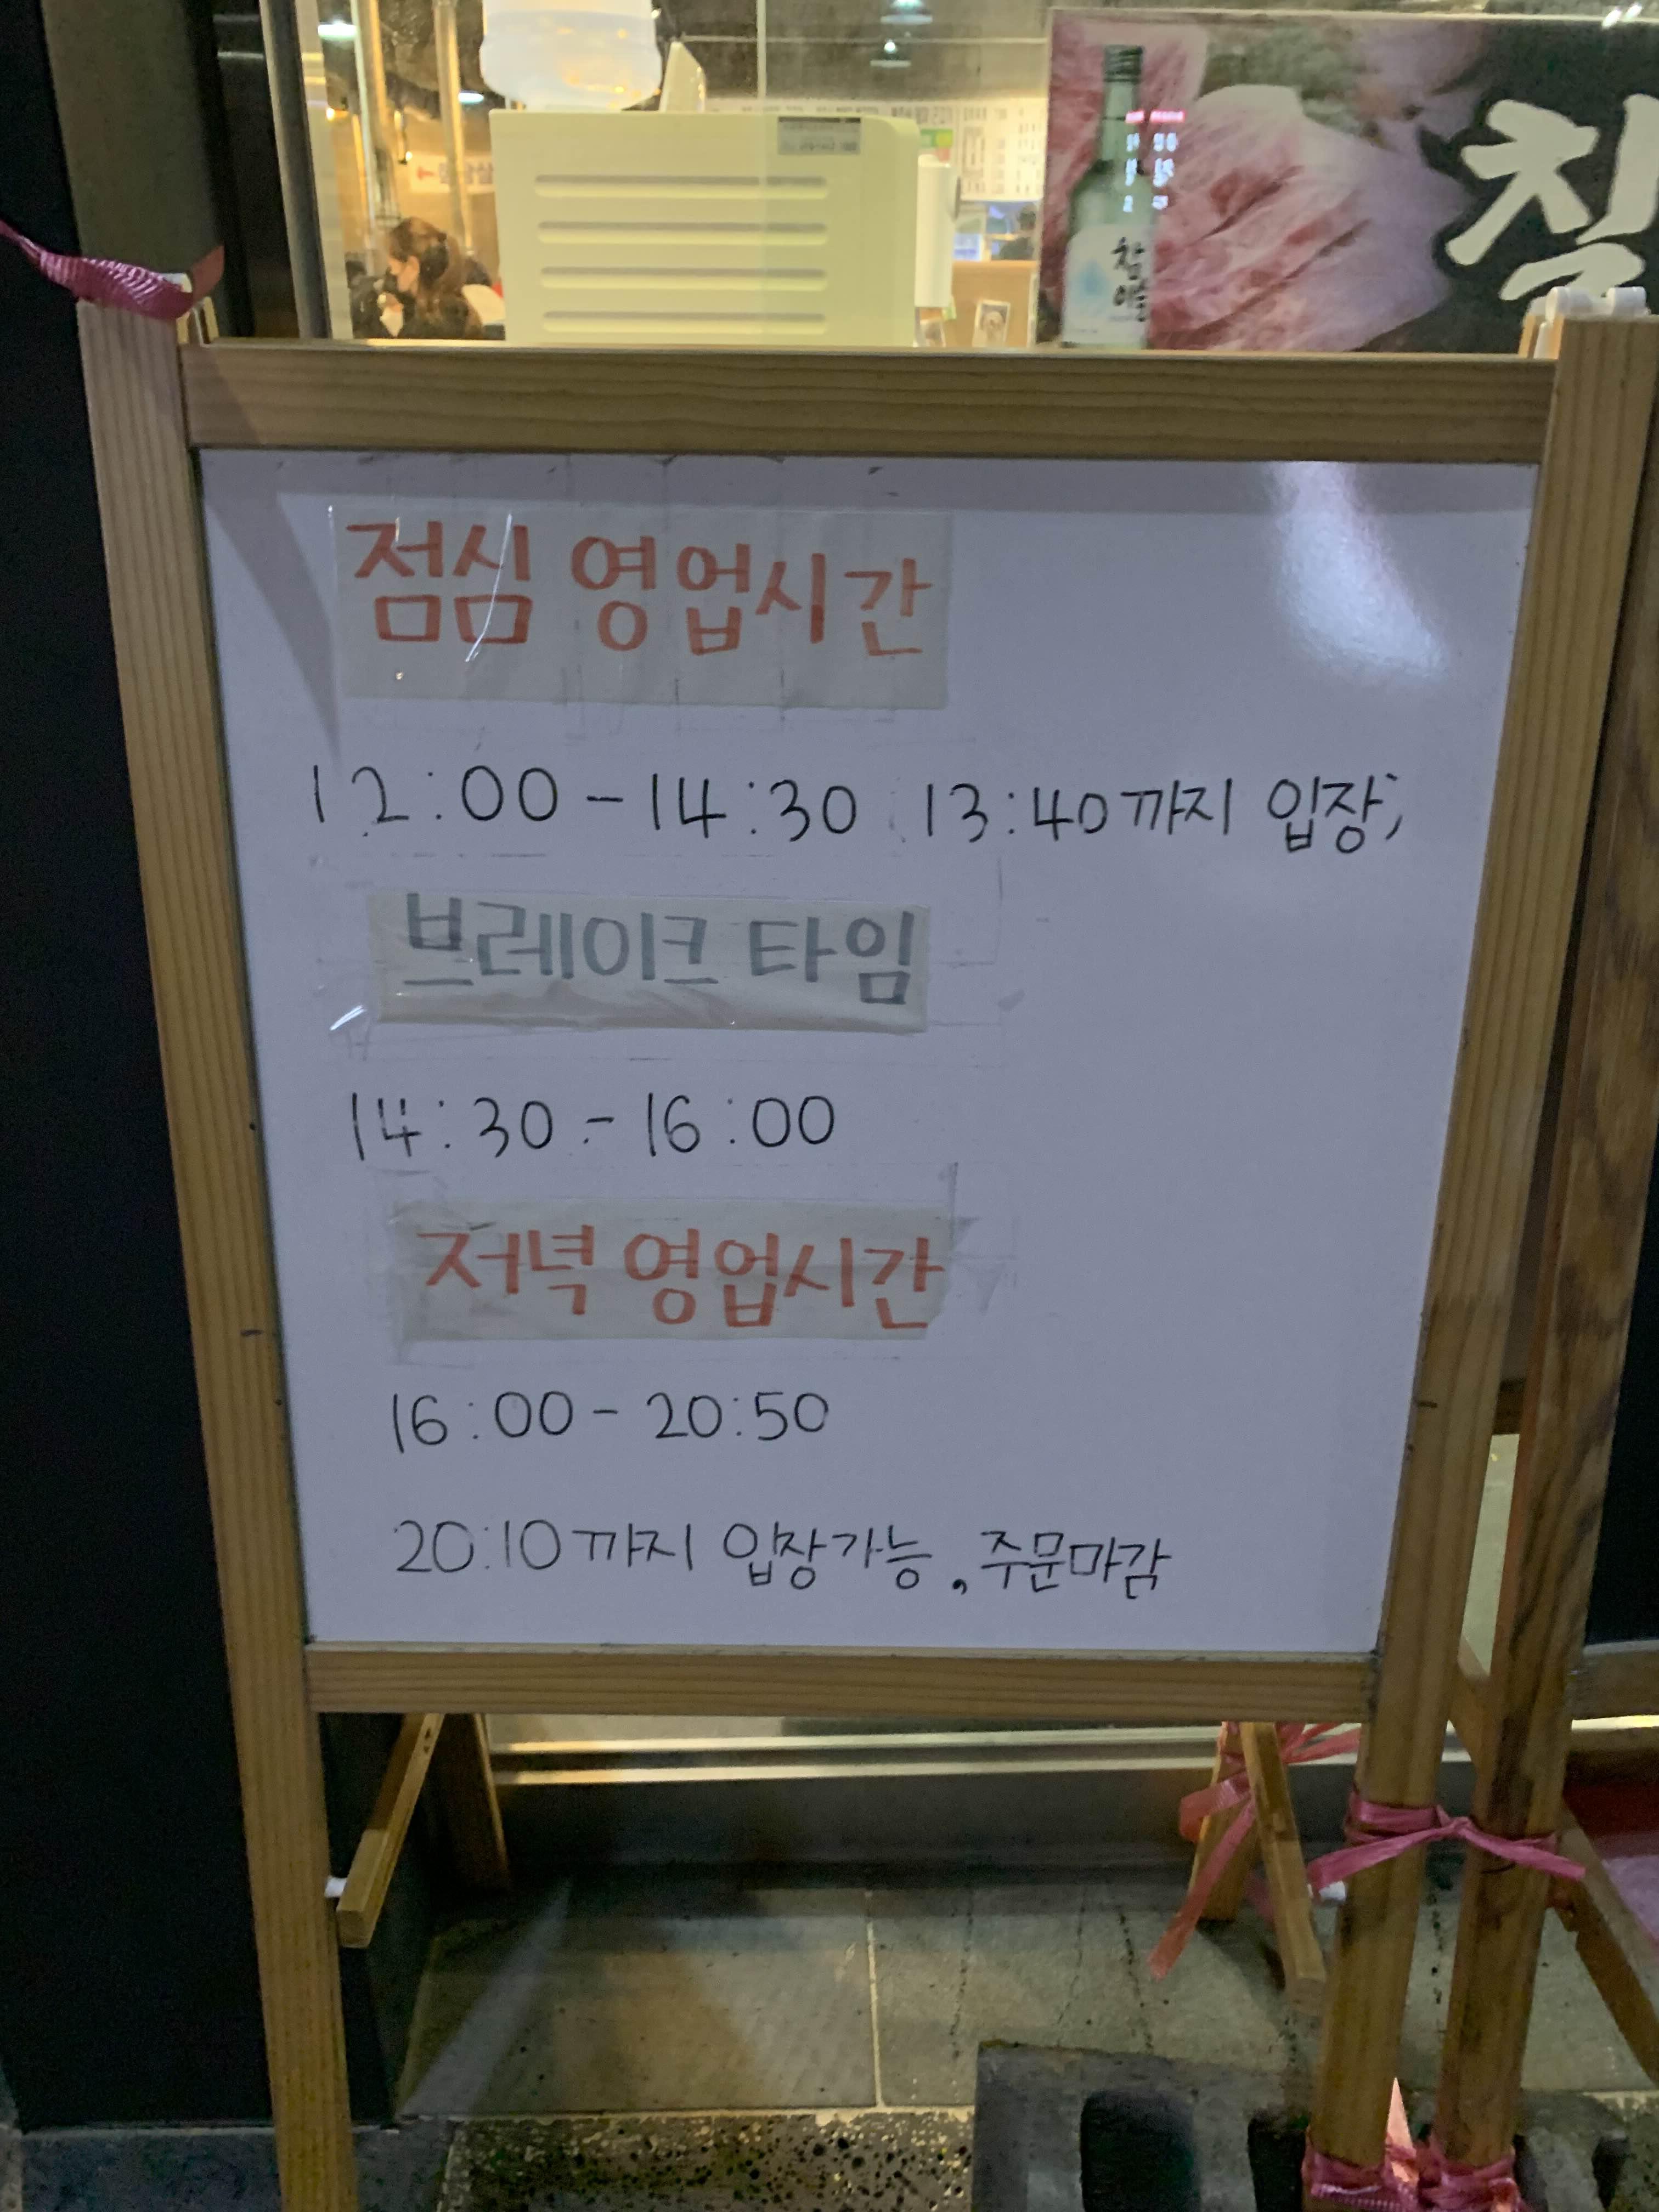 참
이슬
칠
점심 영업시간
12:00-14:30 13:40까지 입장,
브레이크 타임
14:30-16:00
저녁 영업시간
16:00-20:50
20:10까지 입장가능, 주문마감